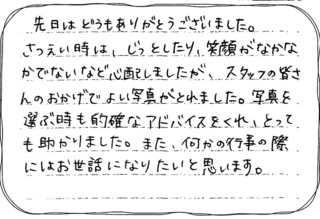 先日はどうもありがとうございました。
さつえい時は、じっとしたり、笑顔がなかな
かでないなど心配しましたが、スタッフの皆さ
んのおかげでよい写真がとれました。写真を
選ぶ時も的確なアドバイスをくれ、とって
も助かりました。また、何かの行事の際
にはお世話になりたいと思います。